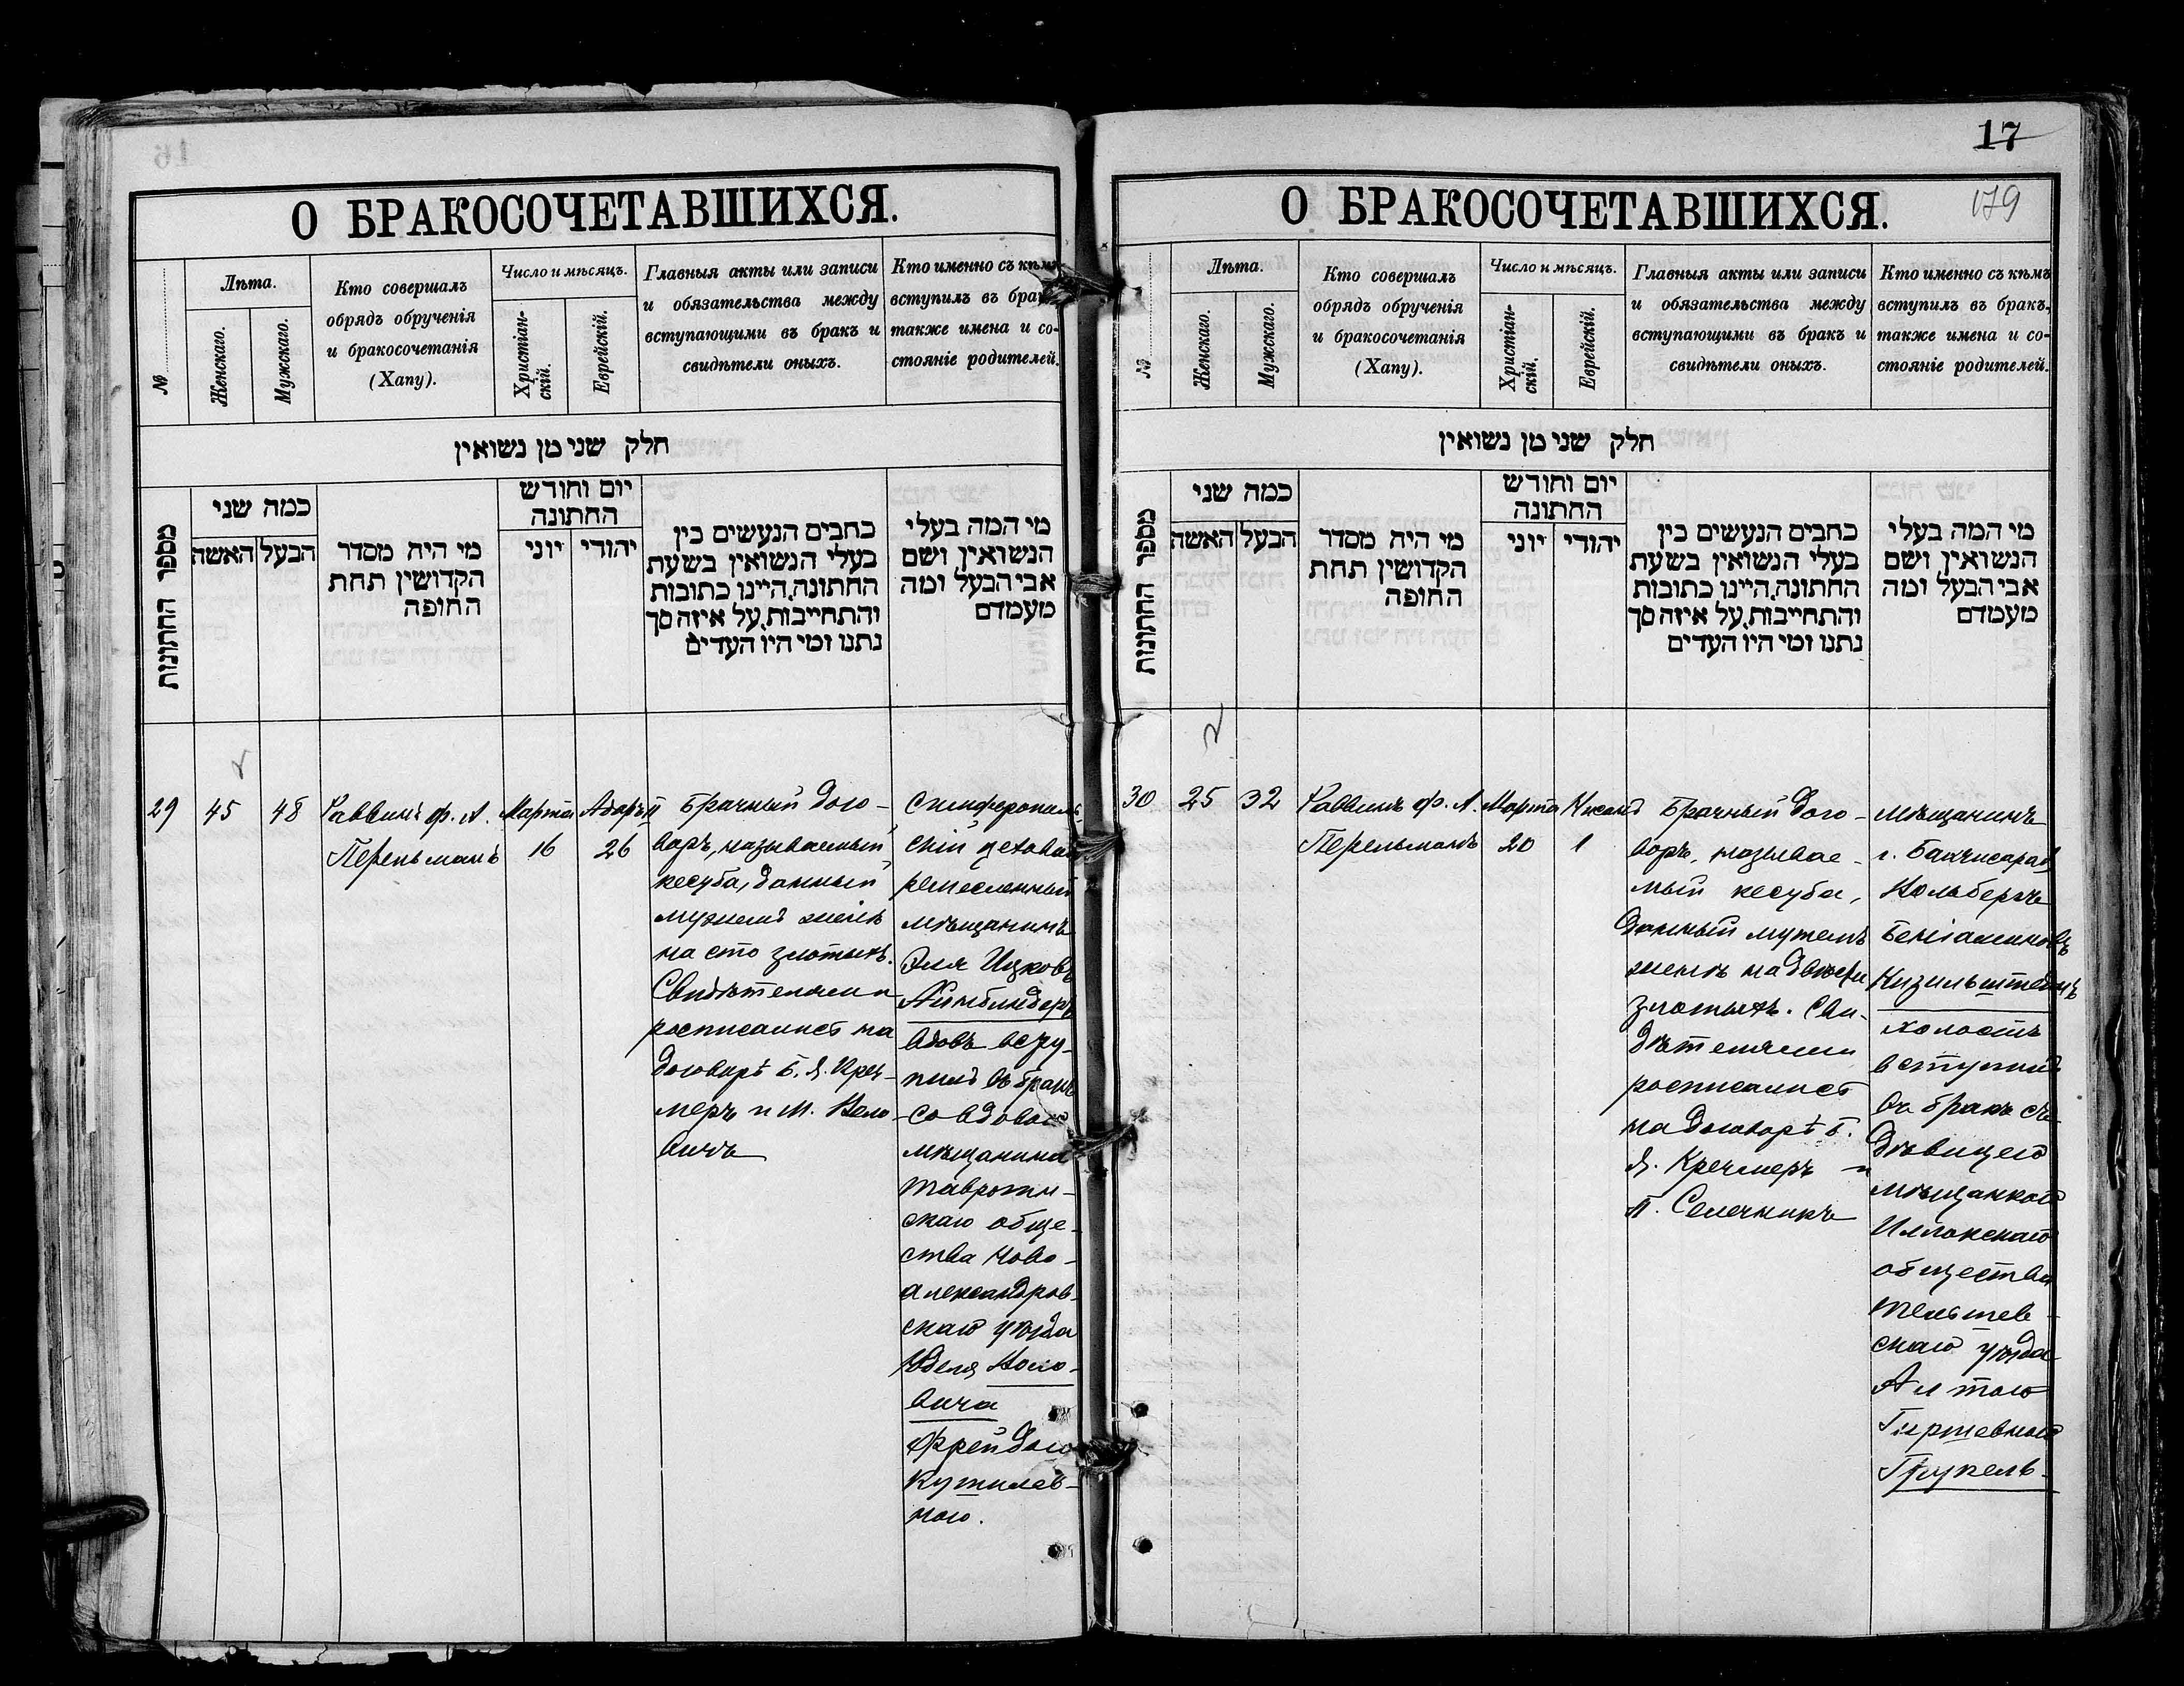 О БРАКОСОЧЕТАВШИХСЯ.
№
Лѣта.
Женскаго.
Мужскаго.
Кто совершалъ
обрядъ обрученія
и бракосочетанія
(Хапу).
Число и мѣсяцъ.
Христіан-
скій.
Еврейскій.
Главныя акты или записи
и обязательства между
вступающими въ бракъ и
свидѣтели оныхъ.
Кто именно съ кѣмъ
вступилъ въ бракъ
также имена и со-
стояніе родителей.
חלק שני מן נשואין
מספר החתונות
כמה שני
האשה
הבעל
מי היה מסדר
הקדושין תחת
החופה
יום וחודש
החתונה
יוני
יהודי
כתבים הנעשים בין
בעלי הנשואין בשעת
החתונה, היינו כתובות
והתחייבות, על איזה סך
נתנו ומי היו העדים
מי המה בעלי
הנשואין ושם
אבי הבעל ומה
מעמדם
29
45
48
Раввинъ Ф. А.
Перельманъ
Марта
16
Адаръ II
26
Брачный дого-
воръ, называемый
кесуба, данный
мужемъ женѣ
на сто злотыхъ.
Свидѣтелями
росписались на
договорѣ Б. Я. Креч-
меръ и М. Коло-
вичъ
Симферополь-
скій цеховой
ремесленный
мѣщанинъ
Эля Ицковъ
вдовъ всту-
пилъ въ бракъ
со вдовою
мѣщанина
скаго обще-
ства Ново-
александров-
скаго уѣзда
Юделя
вича
Фрейдою
ною.
17
179
О БРАКОСОЧЕТАВШИХСЯ.
№
Лѣта.
Женскаго.
Мужскаго.
Кто совершалъ
обрядъ обрученія
и бракосочетанія
(Хапу).
Число и мѣсяцъ.
Христіан-
скій.
Еврейскій.
Главныя акты или записи
и обязательства между
вступающими въ бракъ и
свидѣтели оныхъ.
Кто именно съ кѣмъ
вступилъ въ бракъ,
также имена и со-
стояніе родителей.
חלק שני מן נשואין
מספר החתונות
כמה שני
האשה
הבעל
מי היה מסדר
הקדושין תחת
החופה
יום וחודש
החתונה
יוני
יהודי
כתבים הנעשים בין
בעלי הנשואין בשעת
החתונה, היינו כתובות
והתחייבות, על איזה סך
נתנו ומי היו העדים
מי המה בעלי
הנשואין ושם
אבי הבעל ומה
מעמדם
30
25
32
Раввинъ Ф. А.
Перельманъ
Марта
20
Нисанъ
1
Брачный дого-
воръ, называе-
мый кесуба,
данный мужемъ
женѣ на двѣсти
злотыхъ. Сви-
дѣтелями
росписались
на договорѣ Б.
Я. Кречмеръ и
П. Селечникъ
Мѣщанинъ
г. Бахчисарая
Кольберъ
Беніаминовъ
Кизильштейнъ
холостъ
вступилъ
въ бракъ съ
дѣвицею
мѣщанкою
Иллокскаго
общества
Тельшев-
скаго уѣзда
Алтою
Гиршевною
Трупель